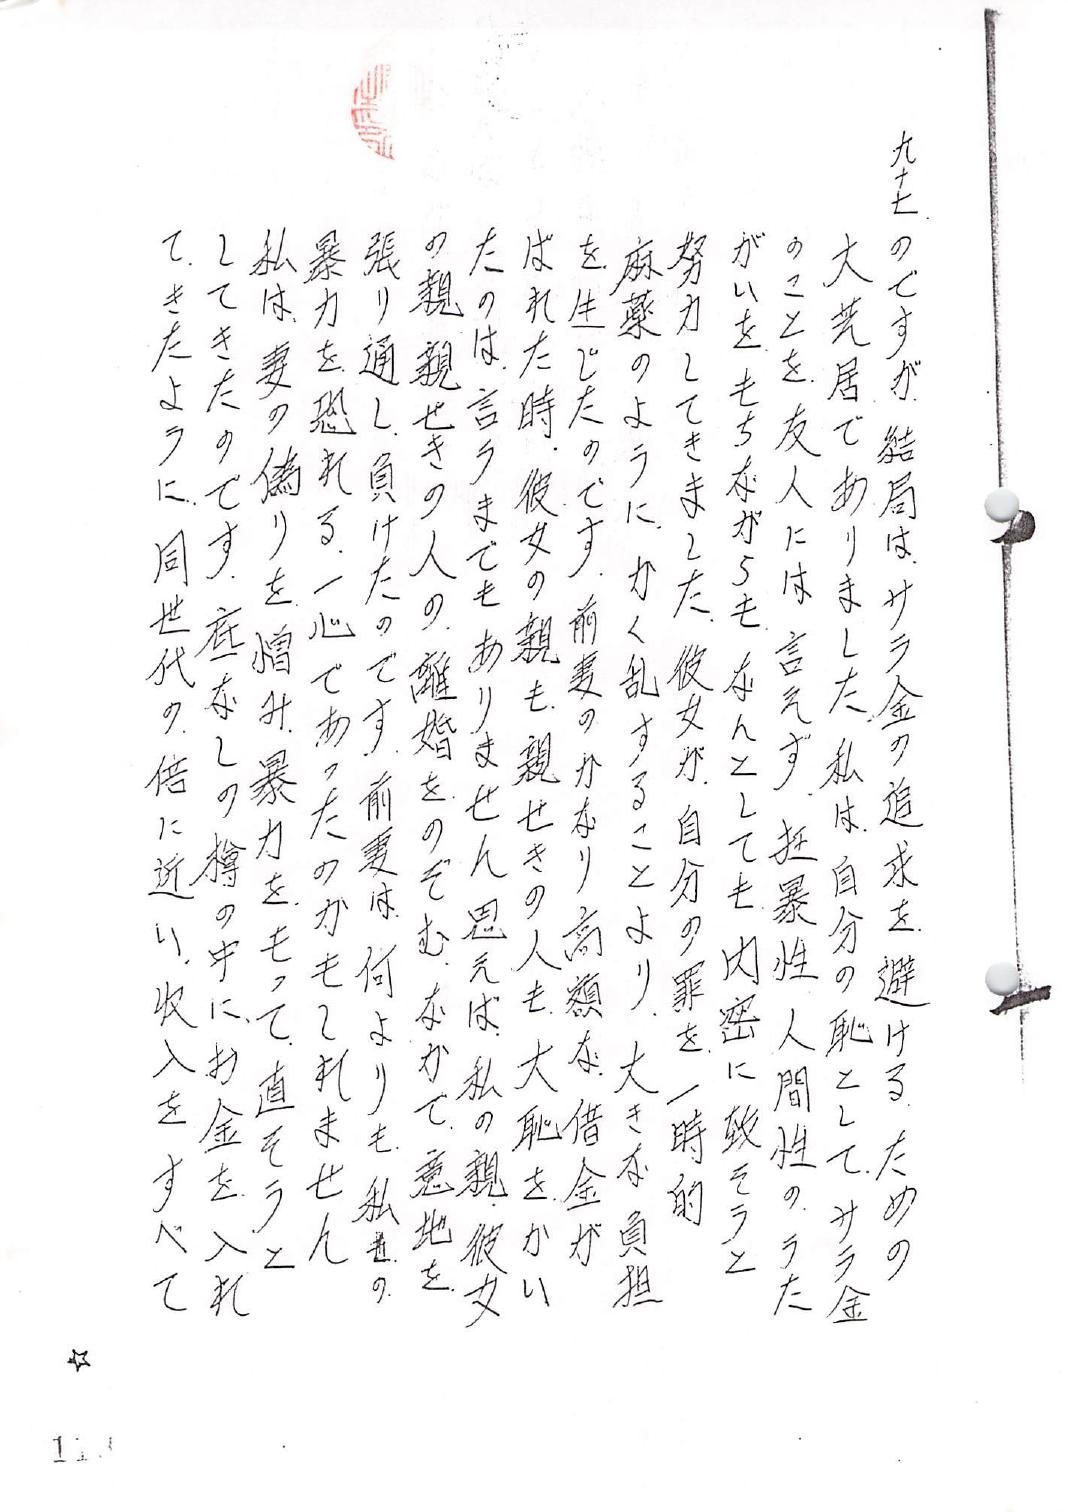 九十七
のですが、結局は、サラ金の追求を、避ける、ための
大芝居でありました、私は、自分の恥として、サラ金
のことを、友人には、言えず、狂暴性、人間性の、うた
がいを、もちながらも、なんとしても、内密に致そうと
努力してきました、彼女が、自分の罪を、一時的
麻薬のように、かく乱することより、大きな負担
を、生じたのです、前妻のかなり高額な、借金が
ばれた時、彼女の親も、親せきの人も、大恥をかい
たのは、言うまでもありません、思えば、私の親、彼女
の親、親せきの人の、離婚をのぞむ、なかで、意地を
張り通し、負けたのです、前妻は、何よりも、私達の
暴力を、恐れる、一心であったのかもしれません
私は、妻の偽りを、憎み、暴力を、もって、直そうと
してきたのです、底なしの樽の中に、お金を、入れ
て、きたように、同世代の、倍に近い、収入をすべて
☆